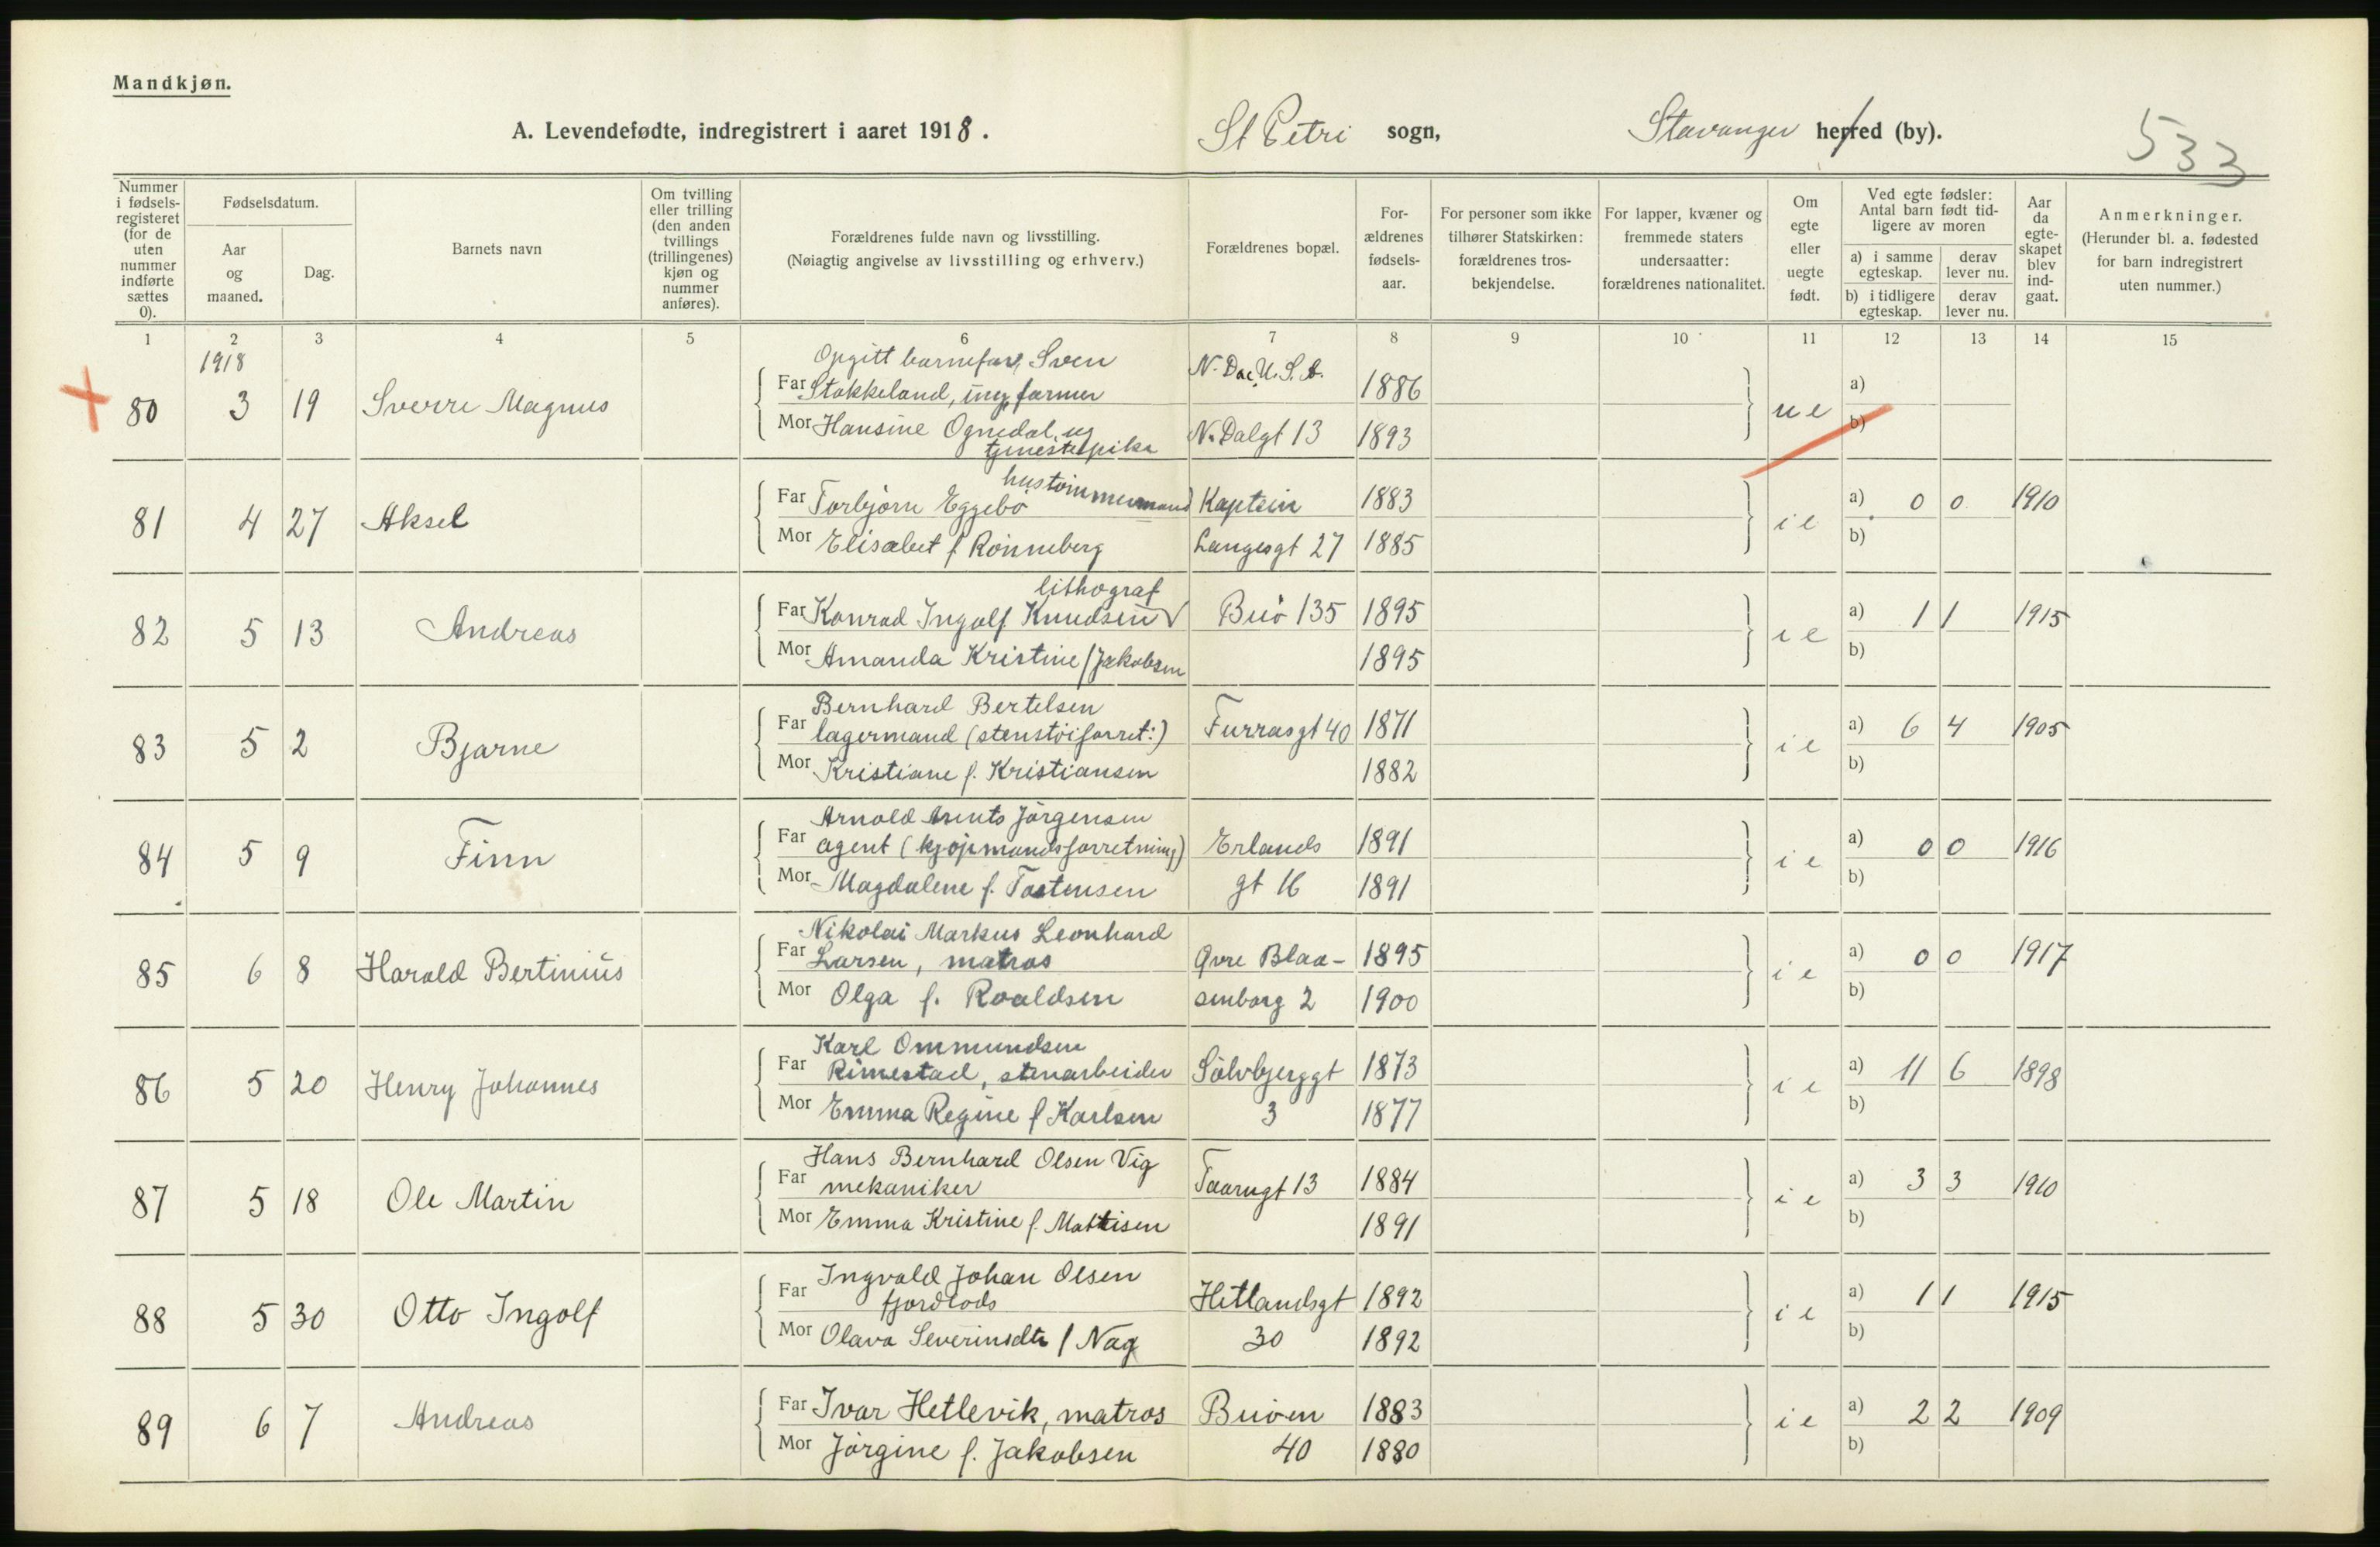 Mandkjøn.
A. Levendefødte, indregistrert i aaret 1918. St Petri sogn, Stavanger herred (by). 533
Nummer i fødselsregisteret (for de uten nummer indførte sættes 0).
Fødselsdatum.
Aar og maaned.
Dag.
Barnets navn
Om tvilling eller trilling (den anden tvillings (trillingenes) kjøn og nummer anføres).
Forældrenes fulde navn og livsstilling.
(Nøiagtig angivelse av livsstilling og erhverv.)
Forældrenes bopæl.
For-ældrenes fødsels-aar.
For personer som ikke tilhører Statskirken: forældrenes tros-bekjendelse.
For lapper, kvæner og fremmede staters undersaatter: forældrenes nationalitet.
Om egte eller uegte født.
Ved egte fødsler: Antal barn født tid-ligere av moren
a) i samme egteskap. derav lever nu.
b) i tidligere egteskap. derav lever nu.
Aar da egte-skapet blev ind-gaat.
Anmerkninger.
(Herunder bl. a. fødested for barn indregistrert uten nummer.)
1 2 3 4 5 6 7 8 9 10 11 12 13 14 15
1918
Opgitt barnefar, Sven N. Dac. U. S. A.
80 3 19 Sverre Magnus Far Stokkeland, ung, farmer 1886 ue a)
Mor Hansine Ognedal, ug N. Dalgt 13 1893 b)
tjenestepike
hustømmermand
81 4 27 Aksel Far Torbjørn Eggebö Kaptein 1883 ie a) 0 0 1910
Mor Elisabet f. Rönneberg Langesgt 27 1885 b)
lithograf
82 5 13 Andreas Far Konrad Ingolf Knudsen Buö 135 1895 ie a) 1 1 1915
Mor Amanda Kristine f Jakobsen 1895 b)
Bernhard Bertelsen
83 5 2 Bjarne Far lagermand (stenstöiforret:) Furrasgt 40 1871 ie a) 6 4 1905
Mor Kristiane f. Kristiansen 1882 b)
Arnold Arents Jörgensen
84 5 9 Finn Far agent (kjöpmandsforretning) Erlands 1891 ie a) 0 0 1916
Mor Magdalene f. Tastensen gt 16 1891 b)
Nikolai Markus Leonhard
85 6 8 Harald Bertinius Far Larsen, matros Øvre Blaa- 1895 ie a) 0 0 1917
Mor Olga f. Roaldsen senborg 2 1900 b)
Karl Ommundsen
86 5 20 Henry Johannes Far Rimestad, stenarbeider Sölvbjerggt 1873 ie a) 11 6 1898
Mor Emma Regine f Karlsen 3 1877 b)
Hans Bernhard Olsen Vig
87 5 18 Ole Martin Far mekaniker Taarngt 13 1884 ie a) 3 3 1910
Mor Emma Kristine f. Mattisen 1891 b)
Ingvald Johan Olsen
88 5 30 Otto Ingolf Far fjordlods Hetlandsgt 1892 ie a) 1 1 1915
Mor Olava Severinsdtr f Nag 30 1892 b)
89 6 7 Andreas Far Ivar Hetlevik, matros Buöen 1883 ie a) 2 2 1909
Mor Jörgine f. Jakobsen 40 1880 b)